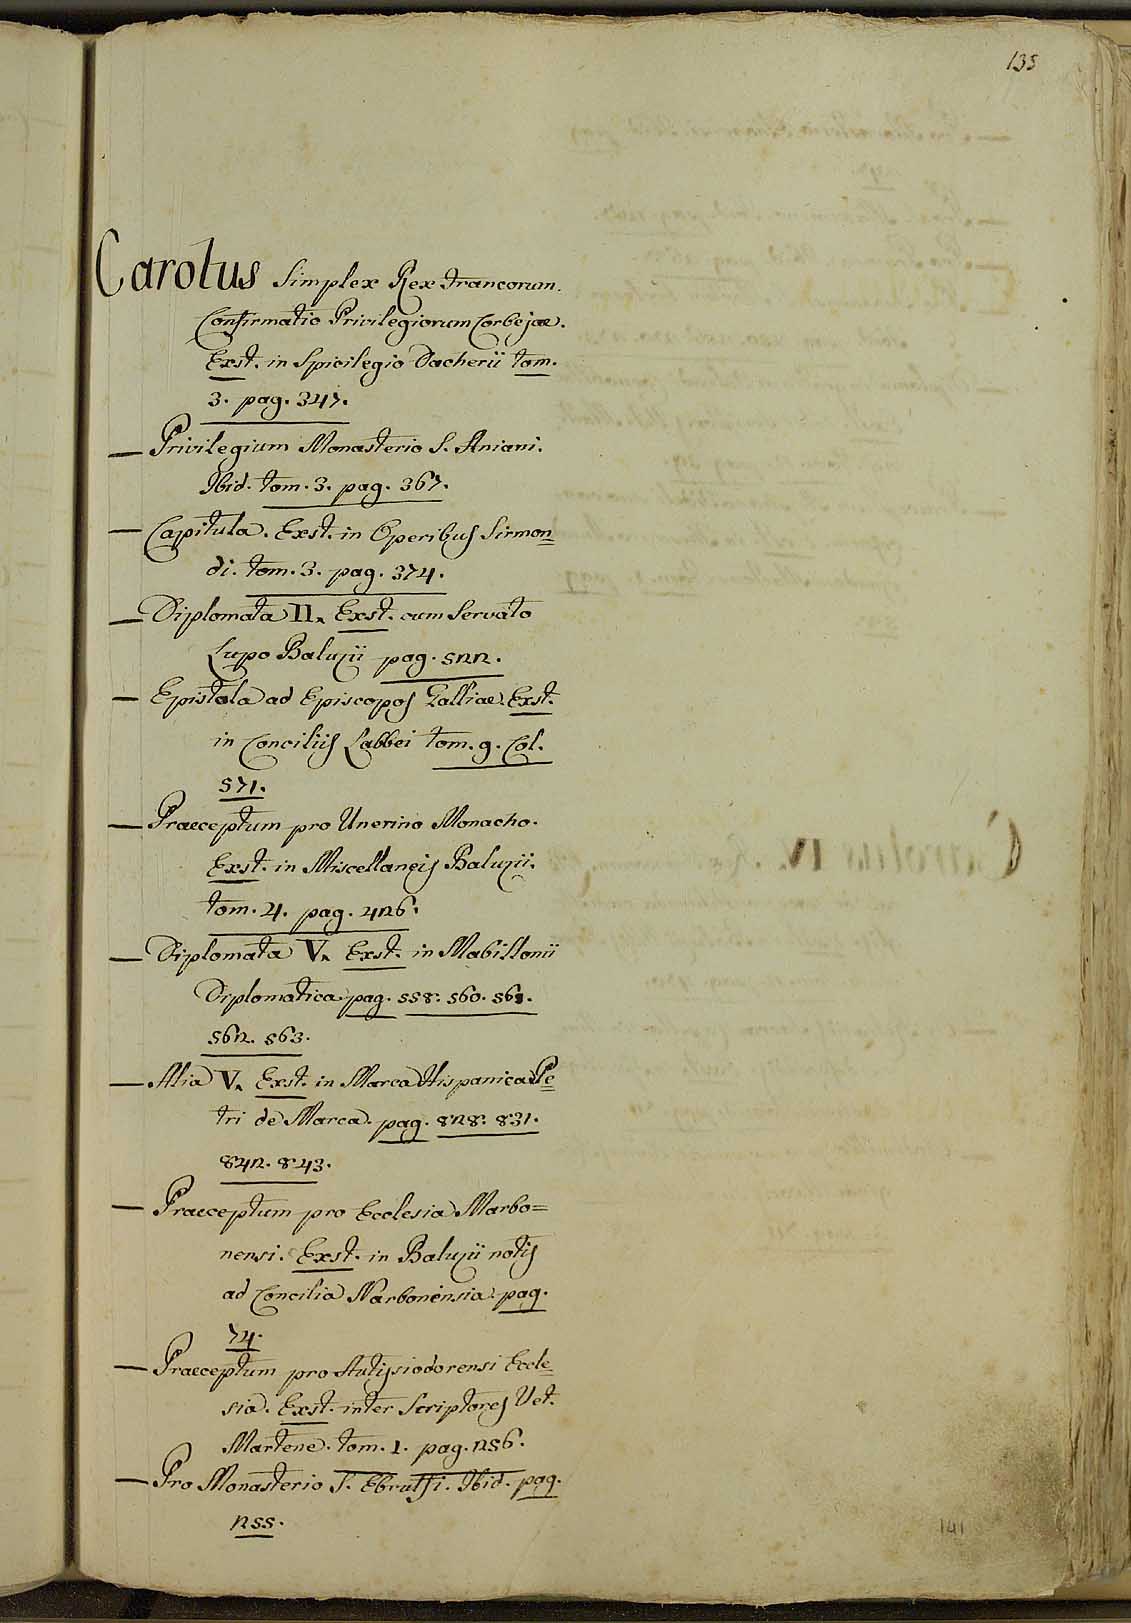 135
Carolus Simplex Rex Francorum.
Confirmatio Privilegiorum Corbejae.
Exst. in Spicilegio Dacherii tom.
3. pag. 347.
— Privilegium Monasterio S. Aniani.
Ibid. tom. 3. pag. 367.
— Capitula. Exst. in Operibus Sirmon=
di. tom. 3. pag. 374.
— Diplomata II. Exst. cum Servato
Lupo Baluzii pag. 522.
— Epistola ad Episcopos Galliae. Exst.
in Conciliis Labbei tom. 9. Col.
571.
— Praeceptum pro Unerino Monacho.
Exst. in Miscellaneis Baluzii.
tom. 4. pag. 426.
— Diplomata V. Exst. in Mabillonii
Diplomatica. pag. 558. 560. 561.
562. 563.
— Alia V. Exst. in Marca Hispanica Pe=
tri de Marca. pag. 828. 831.
842. 843.
— Praeceptum pro Ecclesia Narbo=
nensi. Exst. in Baluzii notis
ad Concilia Narbonensia. pag.
74.
— Praeceptum pro Autissiodorensi Eccle=
sia. Exst. inter Scriptores Vet.
Martene. tom. 1. pag. 256.
— Pro Monasterio S. Ebrulfi. Ibid. pag.
255.
141